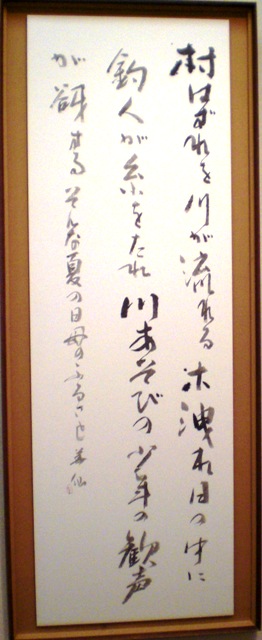 村はずれを川が流れる 木洩れ日の中に
釣人が糸をたれ 川あそびの少年の歓声
が谺する そんな夏の日 母のふるさと